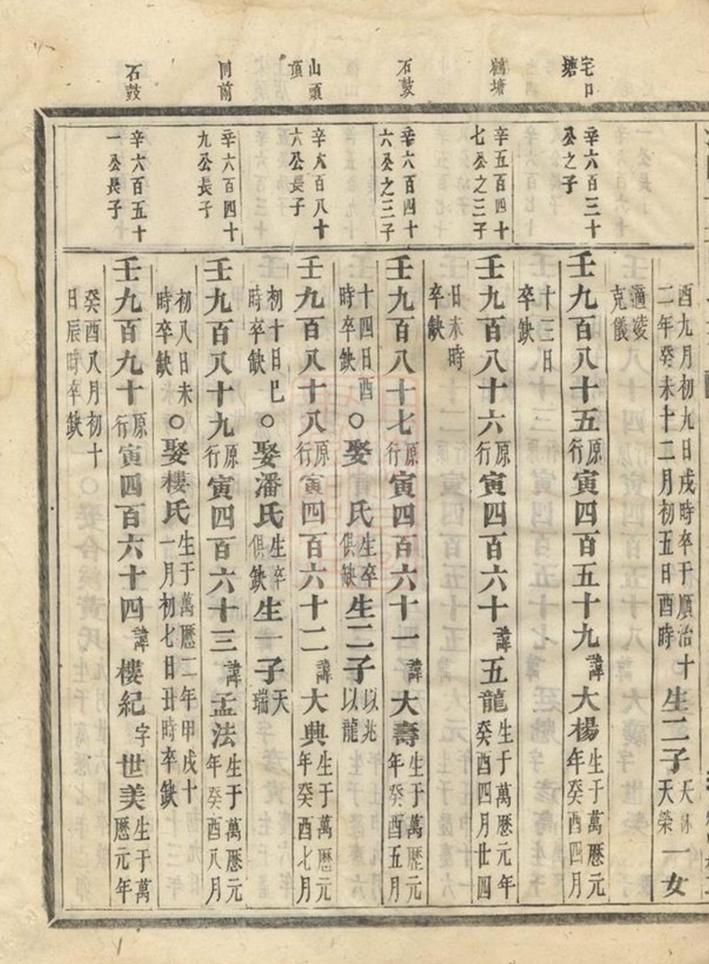 宅口塘
鶴塘
石鼓
山頭頂
同前
石鼓
辛六百三十公之子
辛五百四十七公之三子
辛六百四十六公之三子
辛六百八十六公長子
辛六百四十九公長子
辛六百五十一公長子
酉九月初九日戌時卒于順治十二年癸未十二月初五日酉時生二子天榮一女
適凌克儀
壬九百八十五原行寅四百五十九諱大楊生于萬歷元年癸酉四月
十三日卒缺
壬九百八十六原行寅四百六十諱五龍生于萬歷元年癸酉四月廿四
日未時卒缺
壬九百八十七原行寅四百六十一諱大壽生于萬歷元年癸酉五月
十四日酉時卒缺○娶氏生卒俱缺生二子以兆以龍
壬九百八十八原行寅四百六十二諱大典生于萬歷元年癸酉七月
初十日巳時卒缺○娶潘氏生卒俱缺生一子天瑞
壬九百八十九原行寅四百六十三諱孟法生于萬歷元年癸酉八月
初八日未時卒缺○娶樓氏生于萬歷二年甲戌十一月初七日丑時卒缺
壬九百九十原行寅四百六十四諱樓紀字世美生于萬歷元年
癸酉八月初十日辰時卒缺